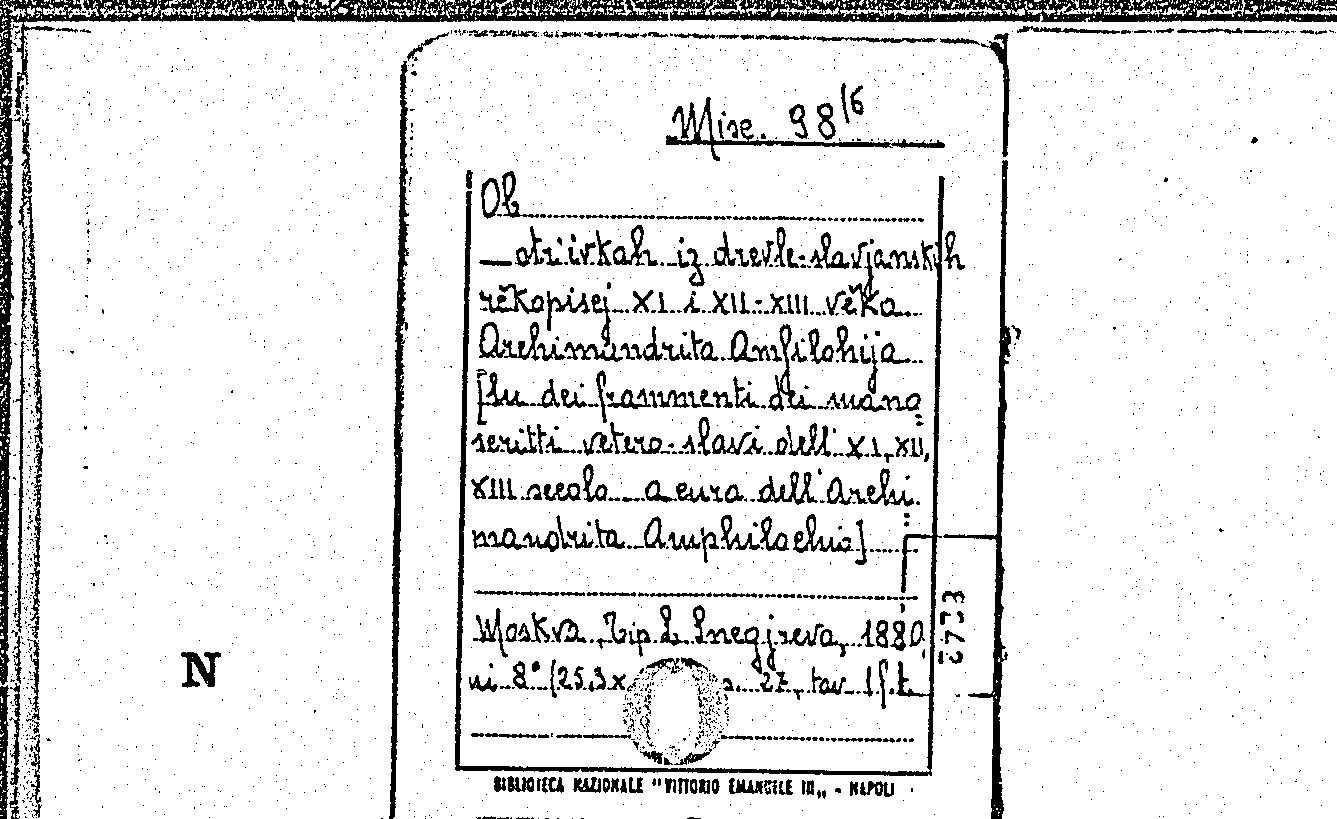 Misc. 98/6
Ob
_ otrivkah iz drevle-slavjanskih
rěkopisej XI i XII-XIII věka
Archimandrita Amfilohija
[Su dei frammenti dei mano
scritti vetero-slavi dell'XI, XII,
XIII secolo _ a cura dell'Archi
mandrita Amphilochio]
Moskva, Tip. L. Snegireva, 1880,
in 8° (25,3x p. 27, tav 1 f.t.
N
BIBLIOTECA NAZIONALE "VITTORIO EMANUELE III„ - NAPOLI